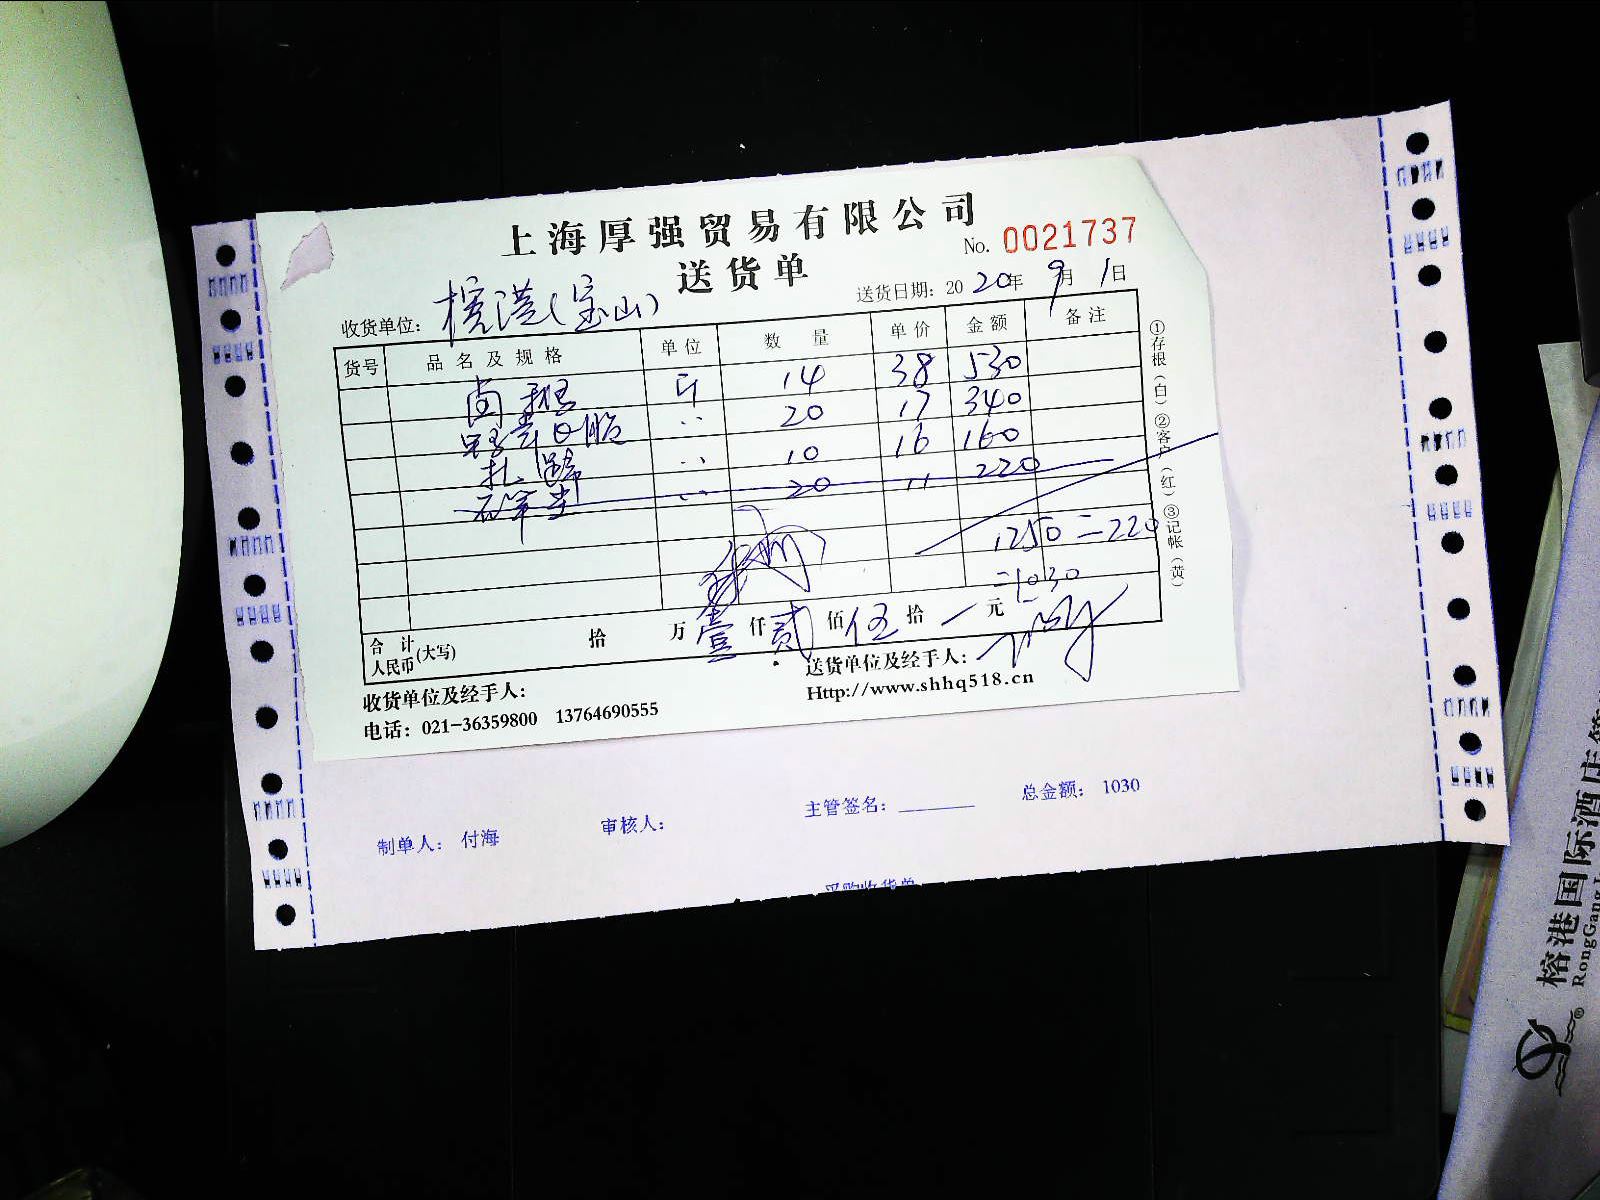 上海厚强贸易有限公司
送货单
No. 0021737
收货单位: 榕港(宝山)
送货日期: 2020年9月1日
货号 品名及规格 单位 数量 单价 金额 备注
卤 斤 14 38 530
20 17 340
扎蹄 10 16 160
20 11 220
1250-220
=1030
合计人民币(大写) 拾 万壹仟贰佰伍拾 元
收货单位及经手人:
送货单位及经手人:
电话: 021-36359800 13764690555
Http://www.shhq518.cn
①存根(白)②客户(红)③记帐(黄)
制单人: 付海
审核人:
主管签名:
总金额: 1030
采购收货单
榕港国际酒店
RongGang